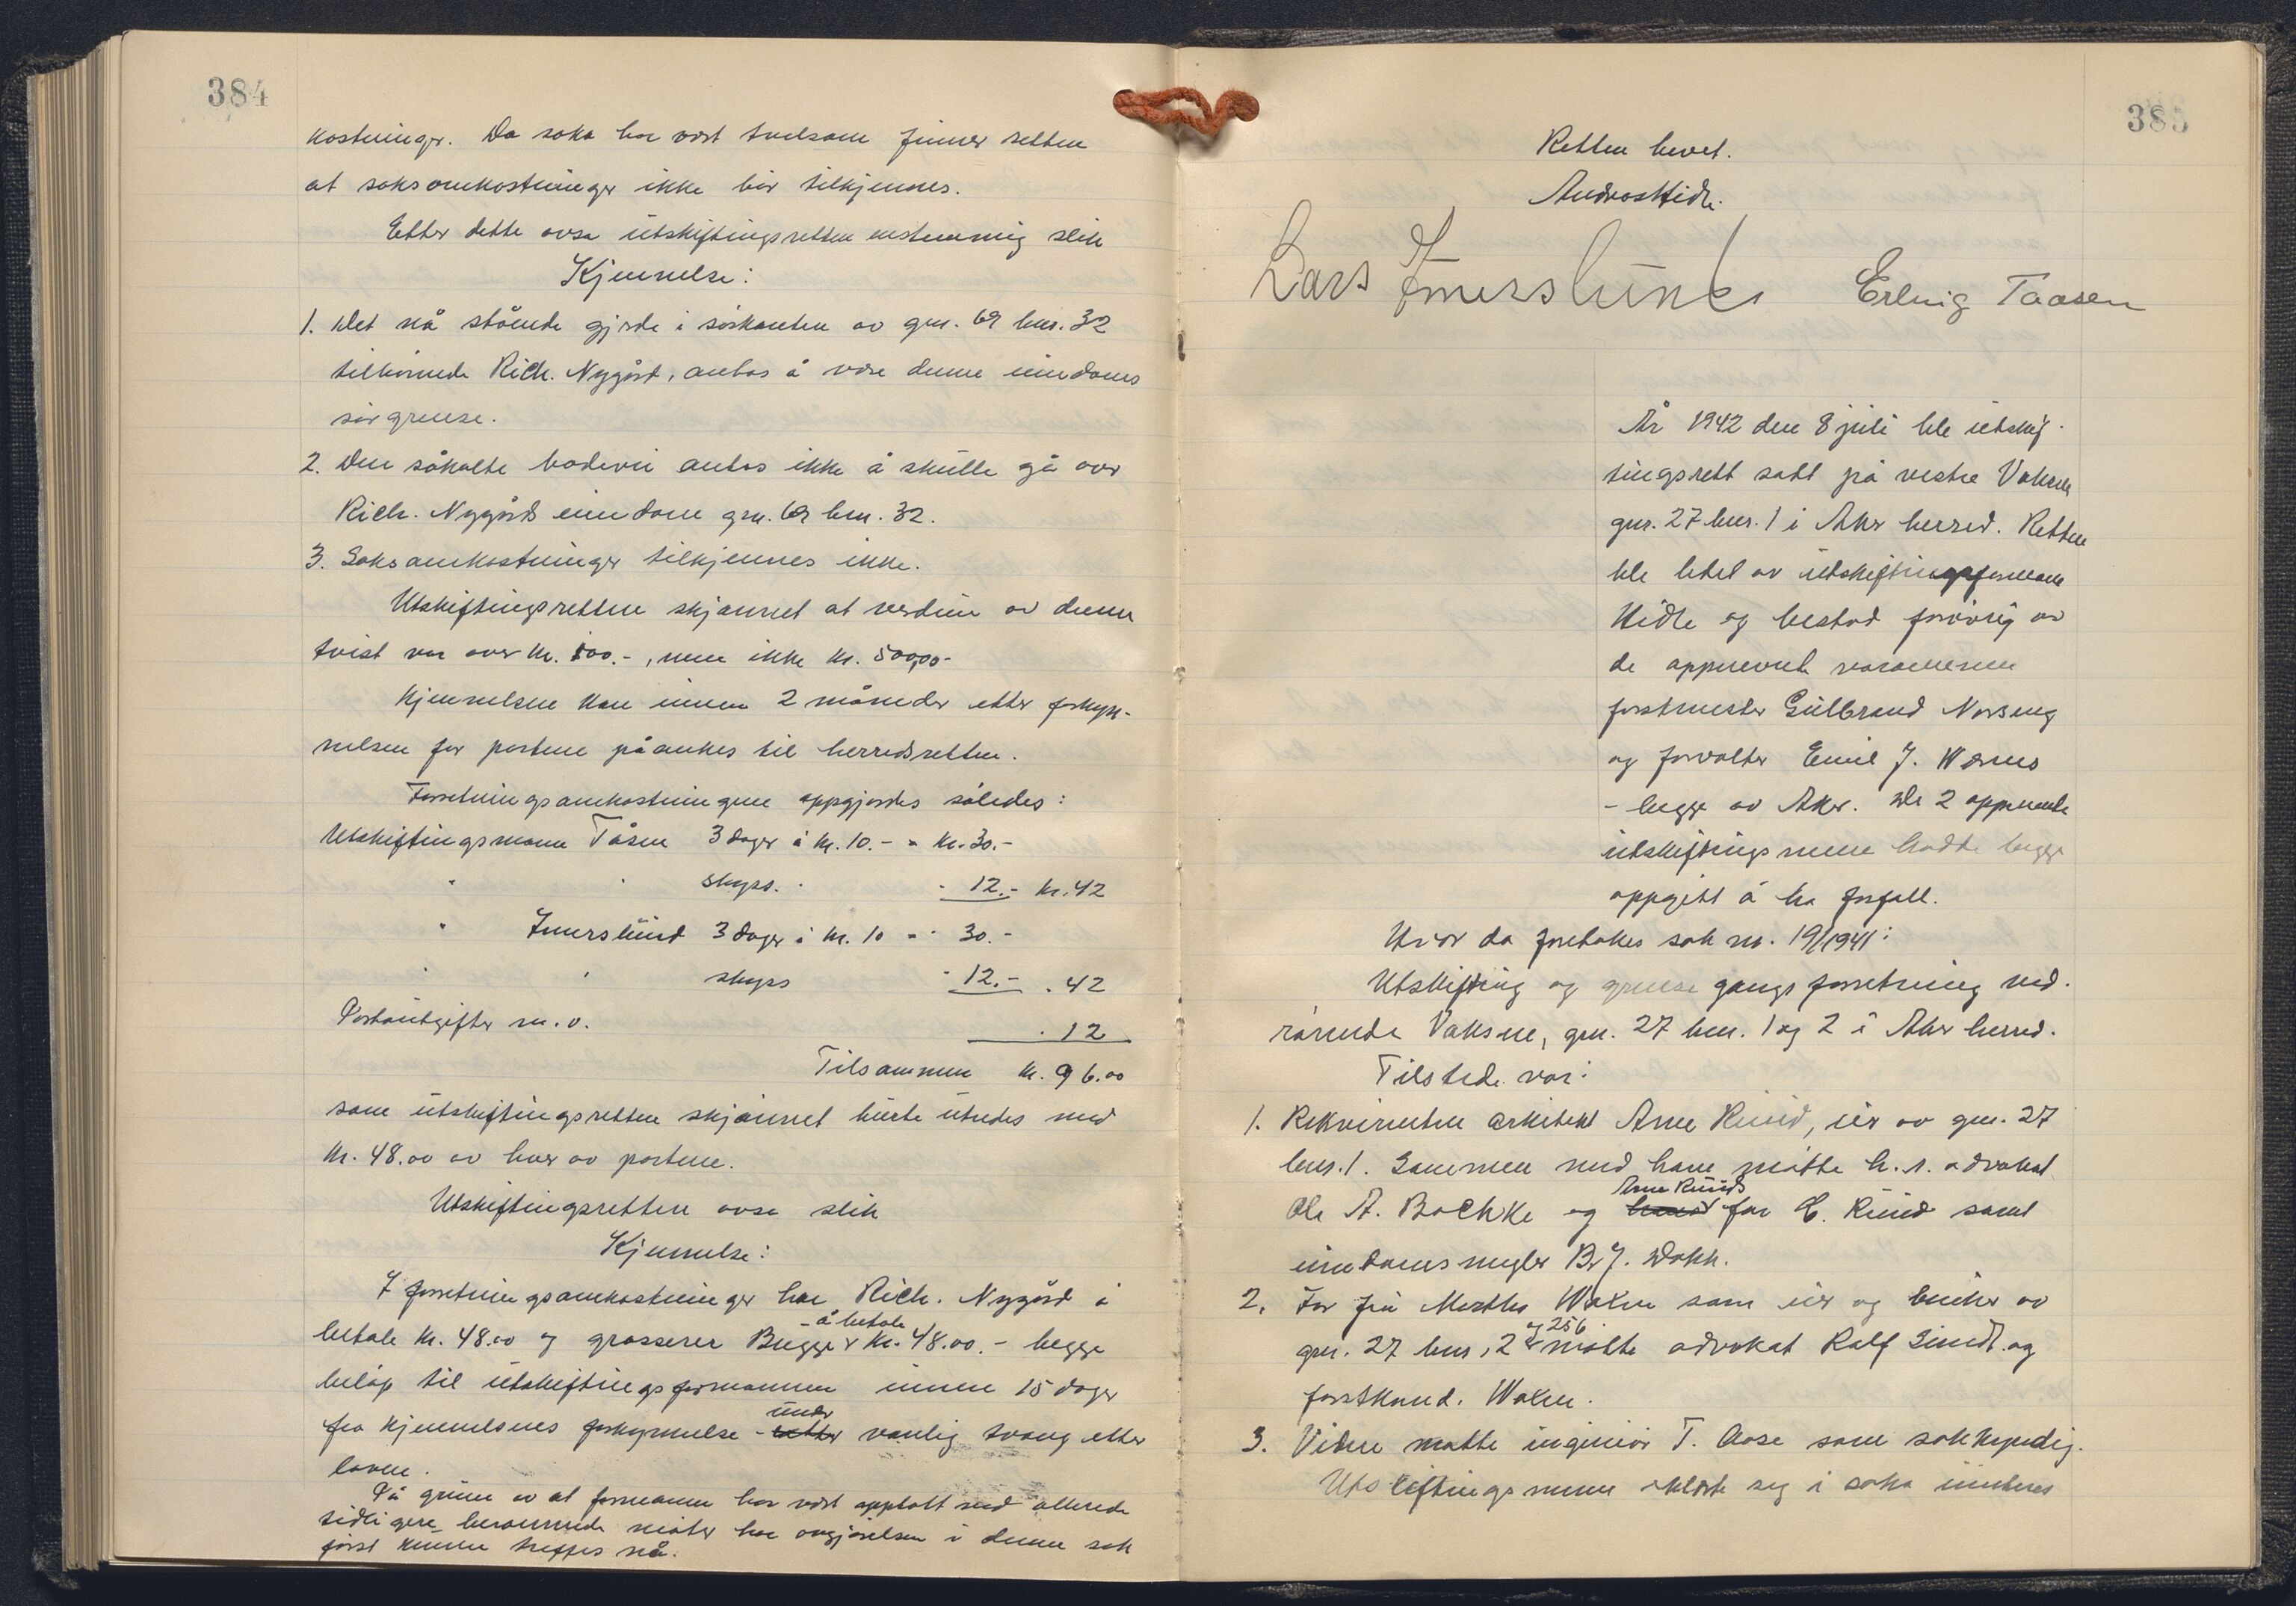 384
kostninger. Da saka har vært tvilsom finner retten
at saksomkostninger ikke bør tilkjennes.
Etter dette avsa utskiftingsretten enstemmig slik
Kjennelse:
1. Det nå stående gjerde i sørkanten av gnr. 69 bnr. 32
tilhørende Rich. Nygård, antas å være denne eiendoms
sørgrense.
2. Den såkalte badevei antas ikke å skulle gå over
Rich. Nygårds eiendom gnr. 69 bnr. 32.
3. Saksomkostninger tilkjennes ikke.
Utskiftingsretten skjønnet at verdien av denne
tvist var over kr. 100.-, men ikke kr. 500,00-
Kjennelsen kan innen 2 måneder etter forkyn-
nelsen for partene påankes til herredsretten.
Forretningsomkostningene oppgjordes således:
Utskiftingsmann Tåsen 3 dager á kr. 10.- = kr. 30.-
" " skyss. " - 12.- kr. 42
" Imerslund 3 dager á kr. 10 = " 30.-
" " skyss " 12.- " 42
Portoutgifter m.v. " 12
Tilsammen kr. 96.00
som utskiftingsretten skjønnet burte utredes med
kr. 48.00 av hver av partene.
Utskiftingsretten avsa slik
Kjennelse:
I forretningsomkostninger har Rich. Nygård å
betale kr. 48.00 og grosserer Bugge - å betale kr. 48.00.- begge
beløp til utskiftingsformannen innen 15 dager
fra kjennelsens forkynnelse - under vanlig tvang etter
loven.
På grunn av at formannen har vært opptatt med allerede
tidligere berammede møter har avgjørelsen i denne sak
først kunne treffes nå.
385
Retten hevet.
Andreas Hidle.
Lars Imerslund Erling Taasen
År 1942 den 8 juli ble utskif-
tingsrett satt på vestre Vaksen
gnr. 27 bnr. 1 i Aker herred. Retten
ble ledet av utskiftingsformann
Hidle og bestod forøvrig av
de oppnevnte varamenn
forstmester Gulbrand Norseng
og forvalter Emil J.
- begge av Aker. De 2 oppnevnte
utskiftingsmenn hadde begge
oppgitt å ha forfall.
Hvor da foretakes sak nr. 19/1941:
Utskifting og grensegangsforretning ved-
rørende Vaksne, gnr. 27 bnr. 1 og 2 i Aker herred.
Tilstede var:
1. Rekvirenten arkitekt Arne Ruud, eier av gnr. 27
bnr. 1. Sammen med ham møtte h.r. advokat
Ole A. Bachke og Arne Ruuds far C. Ruud samt
eiendomsmegler Br. J. Dokk.
2. For fru Marthe Waxen som eier og bruker av
gnr. 27 bnr. 2 og 256 møtte advokat Ralf Lindt og
forstkand. Waxen.
3. Videre møtte ingeniør T. Aase som sakkyndig.
Utskiftingsmenn erklærte seg i saka uinteres